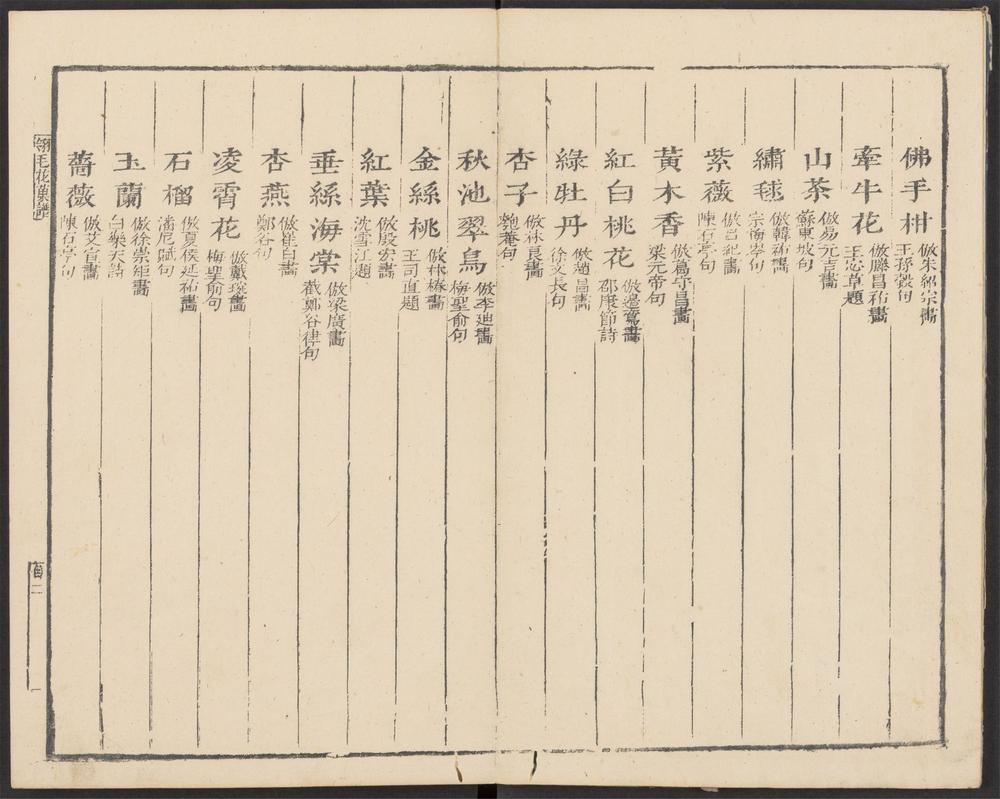 佛手柑 倣朱紹宗畫 王孫穀句
牽牛花 倣滕昌祐畫 王芯草題
山茶 倣易元吉畫 蘇東坡句
繡毬 倣韓祐畫 宗海岑句
紫薇 倣呂紀畫 陳石亭句
黃木香 倣葛守昌畫 梁元帝句
紅白桃花 倣邊鸞畫 邵康節詩
綠牡丹 倣趙昌畫 徐文長句
杏子 倣林良畫 匏菴句
秋池翠鳥 倣李迪畫 梅聖俞句
金絲桃 倣林椿畫 王司直題
紅葉 倣殷宏畫 沈雪江題
垂絲海棠 倣梁廣畫 截鄭谷律句
杏燕 倣崔白畫 鄭谷句
凌霄花 倣戴琬畫 梅聖俞句
石榴 倣夏侯延祐畫 潘尼賦句
玉蘭 倣徐崇矩畫 白樂天詩
薔薇 倣艾宣畫 陳石亭句
翎毛花菓譜
目二